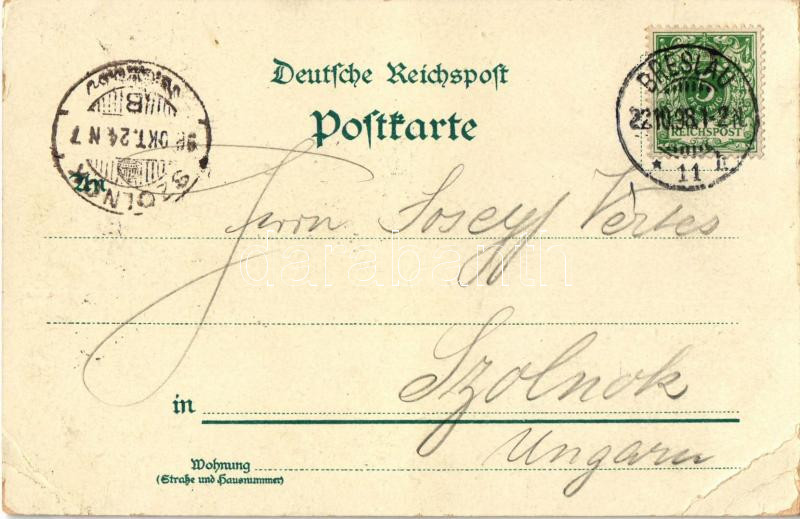 Deutsche Reichspost
Postkarte
BRESLAU
22.10.98.1-2N.
* 11 h
5
REICHSPOST
SZOLNOK
98 OKT. 24 N 7
B
An
Herrn Josef Vertes
darabanth
in Szolnok
Ungarn
Wohnung
(Straße und Hausnummer)